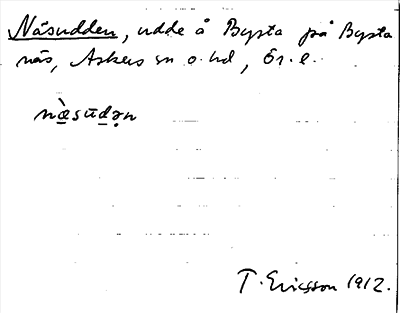 Näsudden, udde å Bysta på Bysta
näs, Askers sn o. hd, Ör. l.
næ̀sūdən
T. Ericsson 1912.